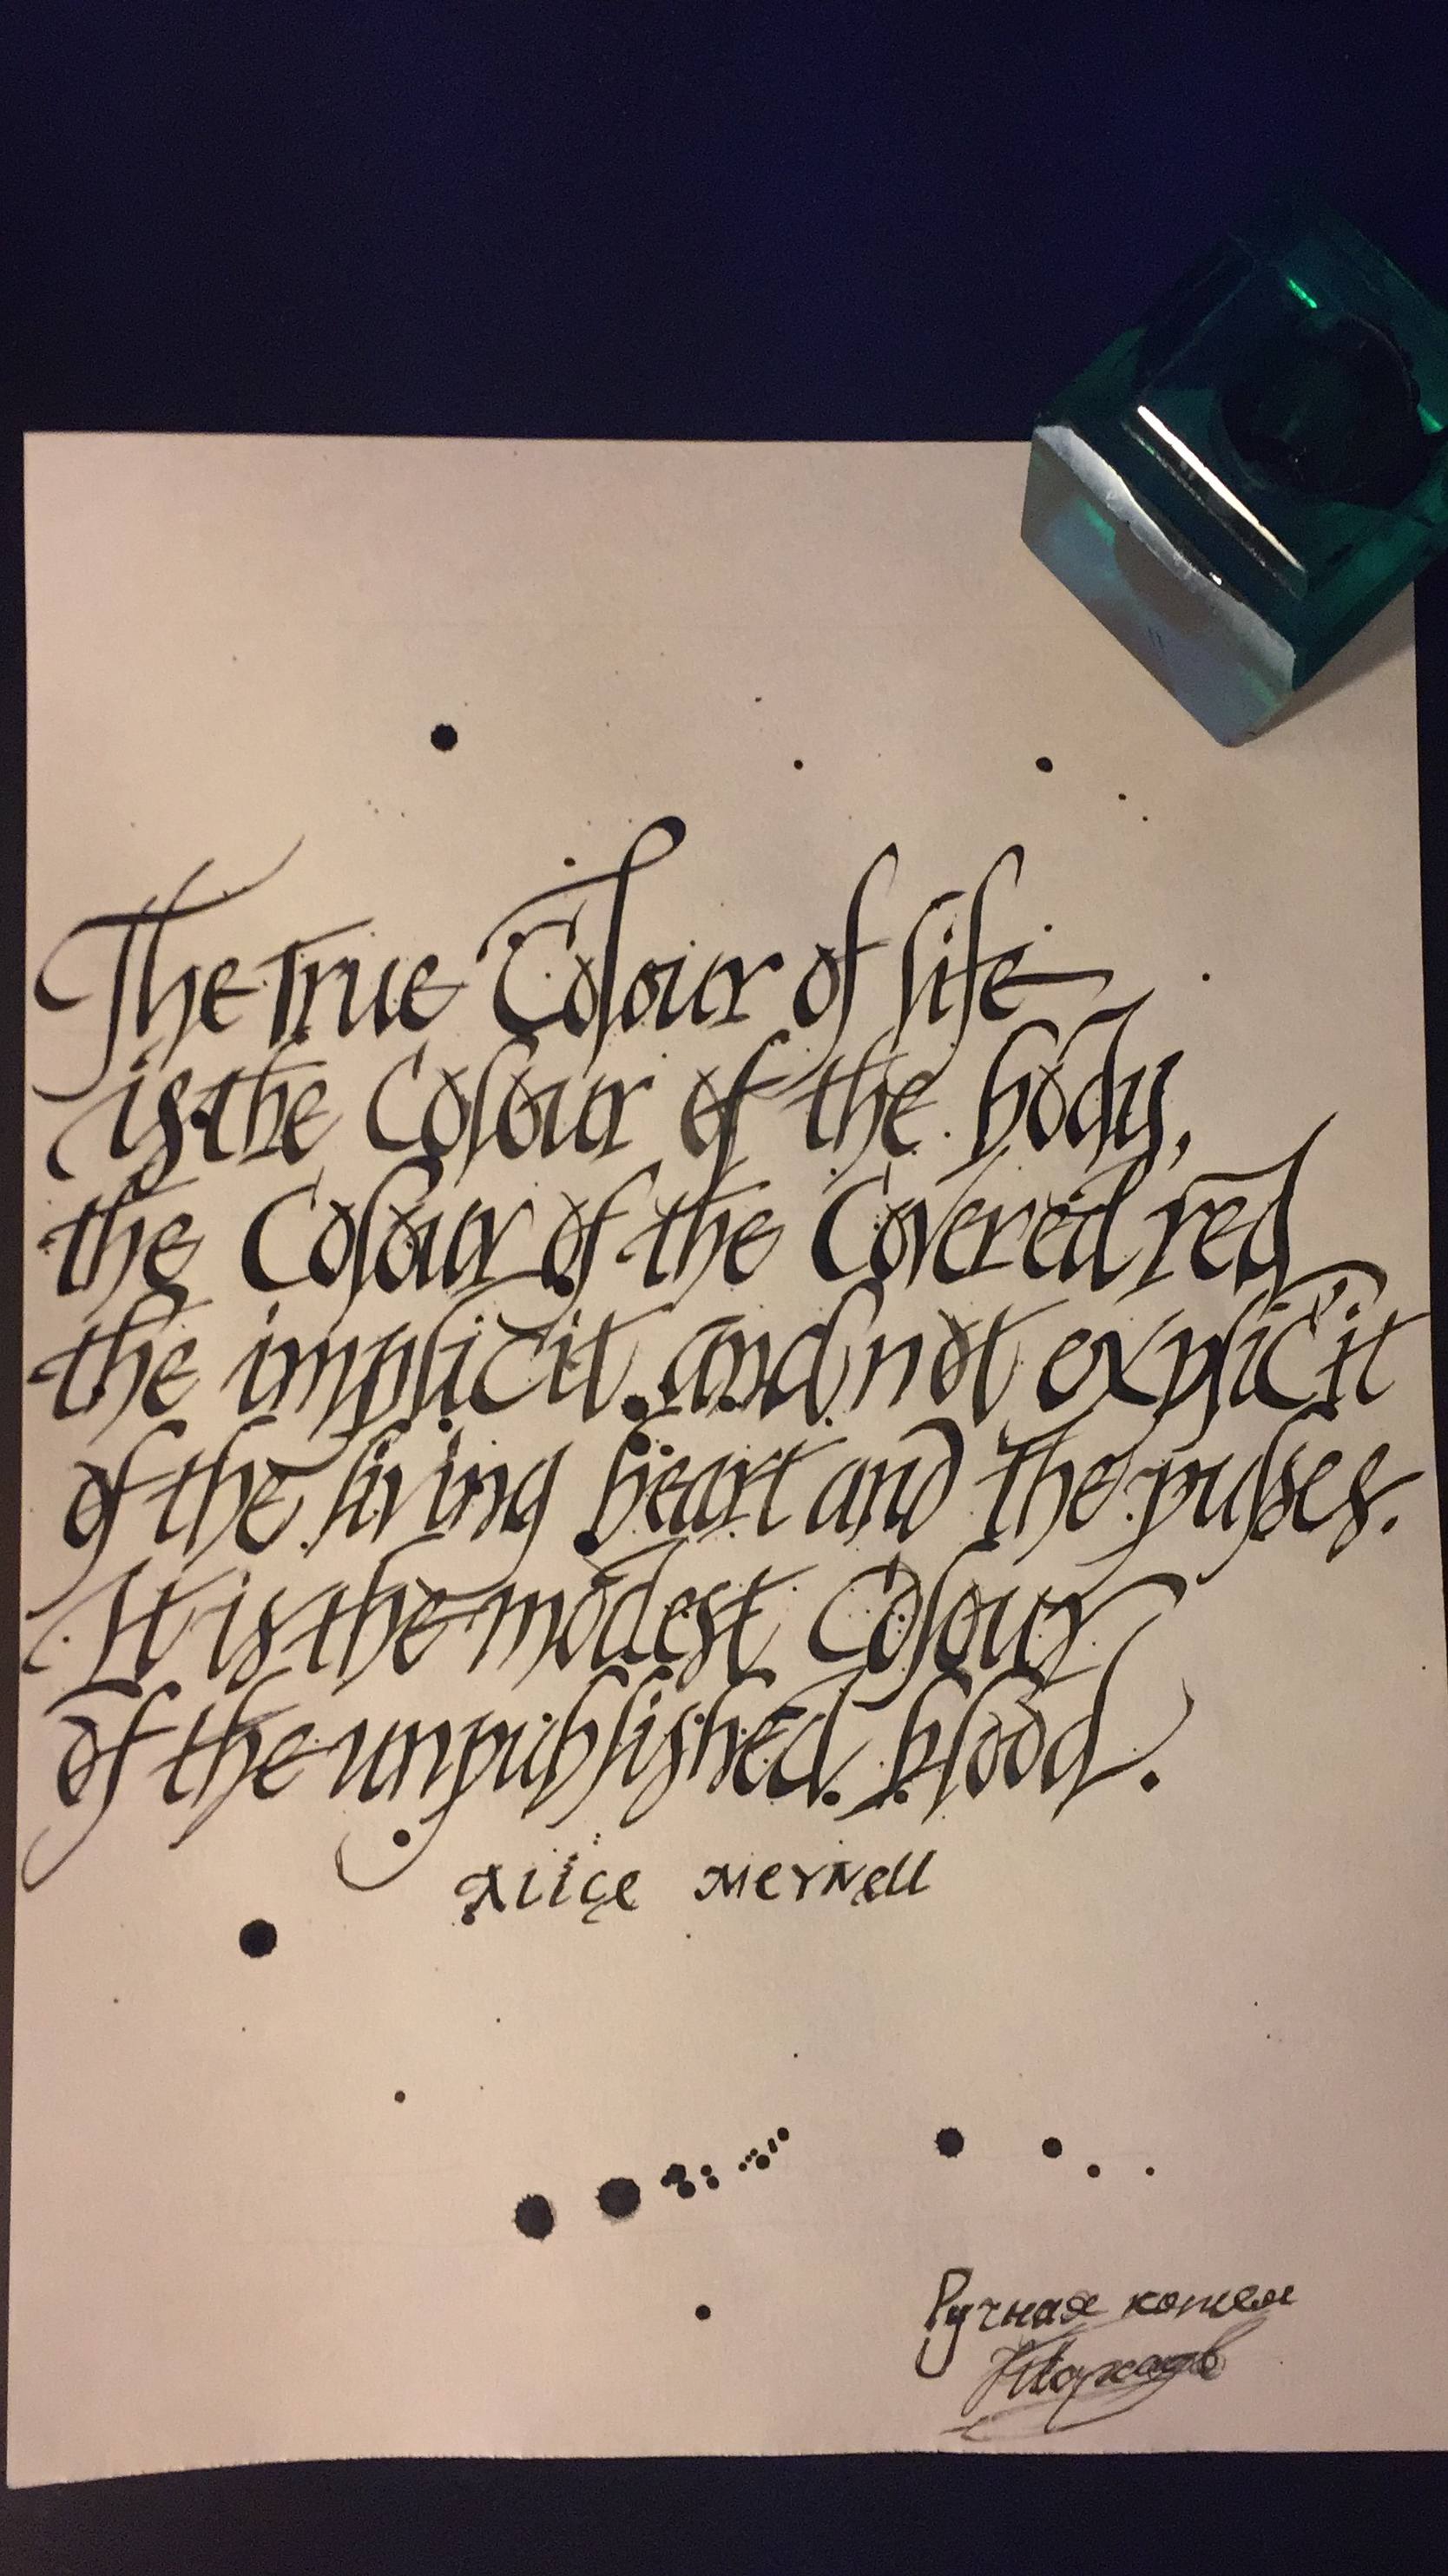 The True Colour of life
is the Colour of the body,
the Colour of the Covered red
the implicit and not explicit
of the living heart and the pulses.
It is the modest Colour
of the unpublished blood.
Alice Meynell
Ручная